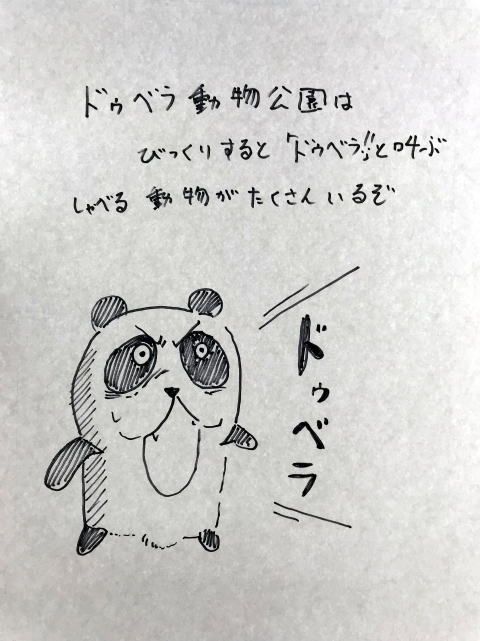 ドゥベラ動物公園は
びっくりすると「ドゥベラ!!」と叫ぶ
しゃべる動物がたくさんいるぞ
ドゥベラ